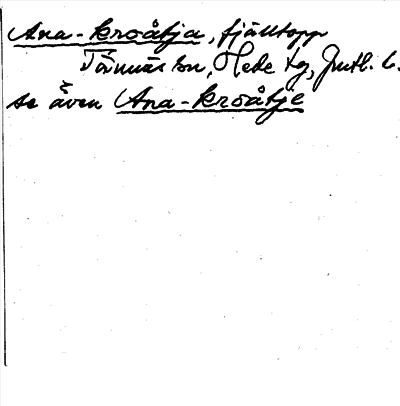 Ana-kroåtja, fjälltopp
Tännäs sn, Hede tg, Jmtl. l.
se även Ana-kroåtje